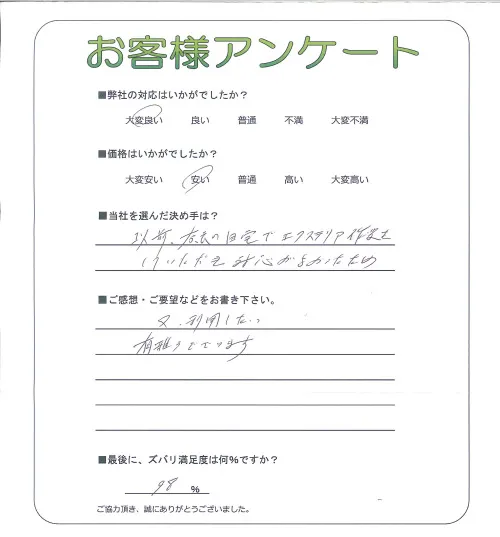 お客様アンケート
■弊社の対応はいかがでしたか？
大変良い 良い 普通 不満 大変不満
■価格はいかがでしたか？
大変安い 安い 普通 高い 大変高い
■当社を選んだ決め手は？
以前、の自宅でエクステリア作業を
していただき対応がよかったため
■ご感想・ご要望などをお書き下さい。
又、利用したい
有難うございます
■最後に、ズバリ満足度は何%ですか？
98 %
ご協力頂き、誠にありがとうございました。